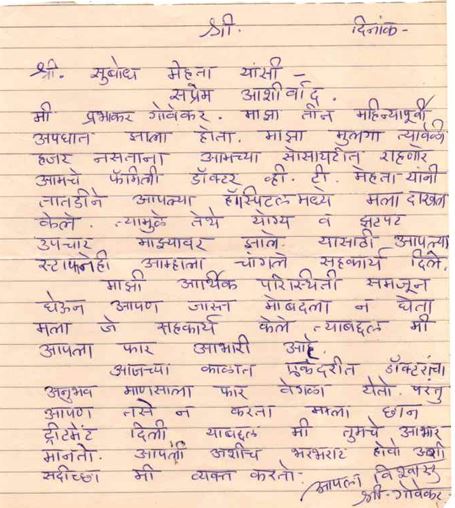 श्री. दिनांक-
श्री. सुबोध मेहता यांसी -
सप्रेम आशीर्वाद.
मी प्रभाकर गोवेकर. माझा तीन महिन्यापूर्वी
अपघात झाला होता. माझा मुलगा त्यावेळी
हजर नसताना आमच्या सोसायटीत राहणारे
आमचे फॅमिली डॉक्टर व्ही. टी. मेहता यांनी
तातडीने आपल्या हॉस्पिटल मध्ये मला दाखल
केले. त्यामुळे तेथे योग्य व झटपट
उपचार माझ्यावर झाले. यासाठी आपल्या
स्टाफनेही आम्हाला चांगले सहकार्य दिले.
माझी आर्थिक परिस्थिती समजून
घेऊन आपण जास्त मोबदला न घेता
मला जे सहकार्य केले त्याबद्दल मी
आपला फार आभारी आहे.
आजच्या काळात एकंदरीत डॉक्टरांचा
अनुभव माणसाला फार वेगळा येतो. परंतु
आपण तसे न करता मला छान
ट्रीटमेंट दिली याबद्दल मी तुमचे आभार
मानतो. आपली अशीच भरभराट होवो अशी
सदीच्छा मी व्यक्त करतो.
आपला विश्वासू
श्री. गोवेकर